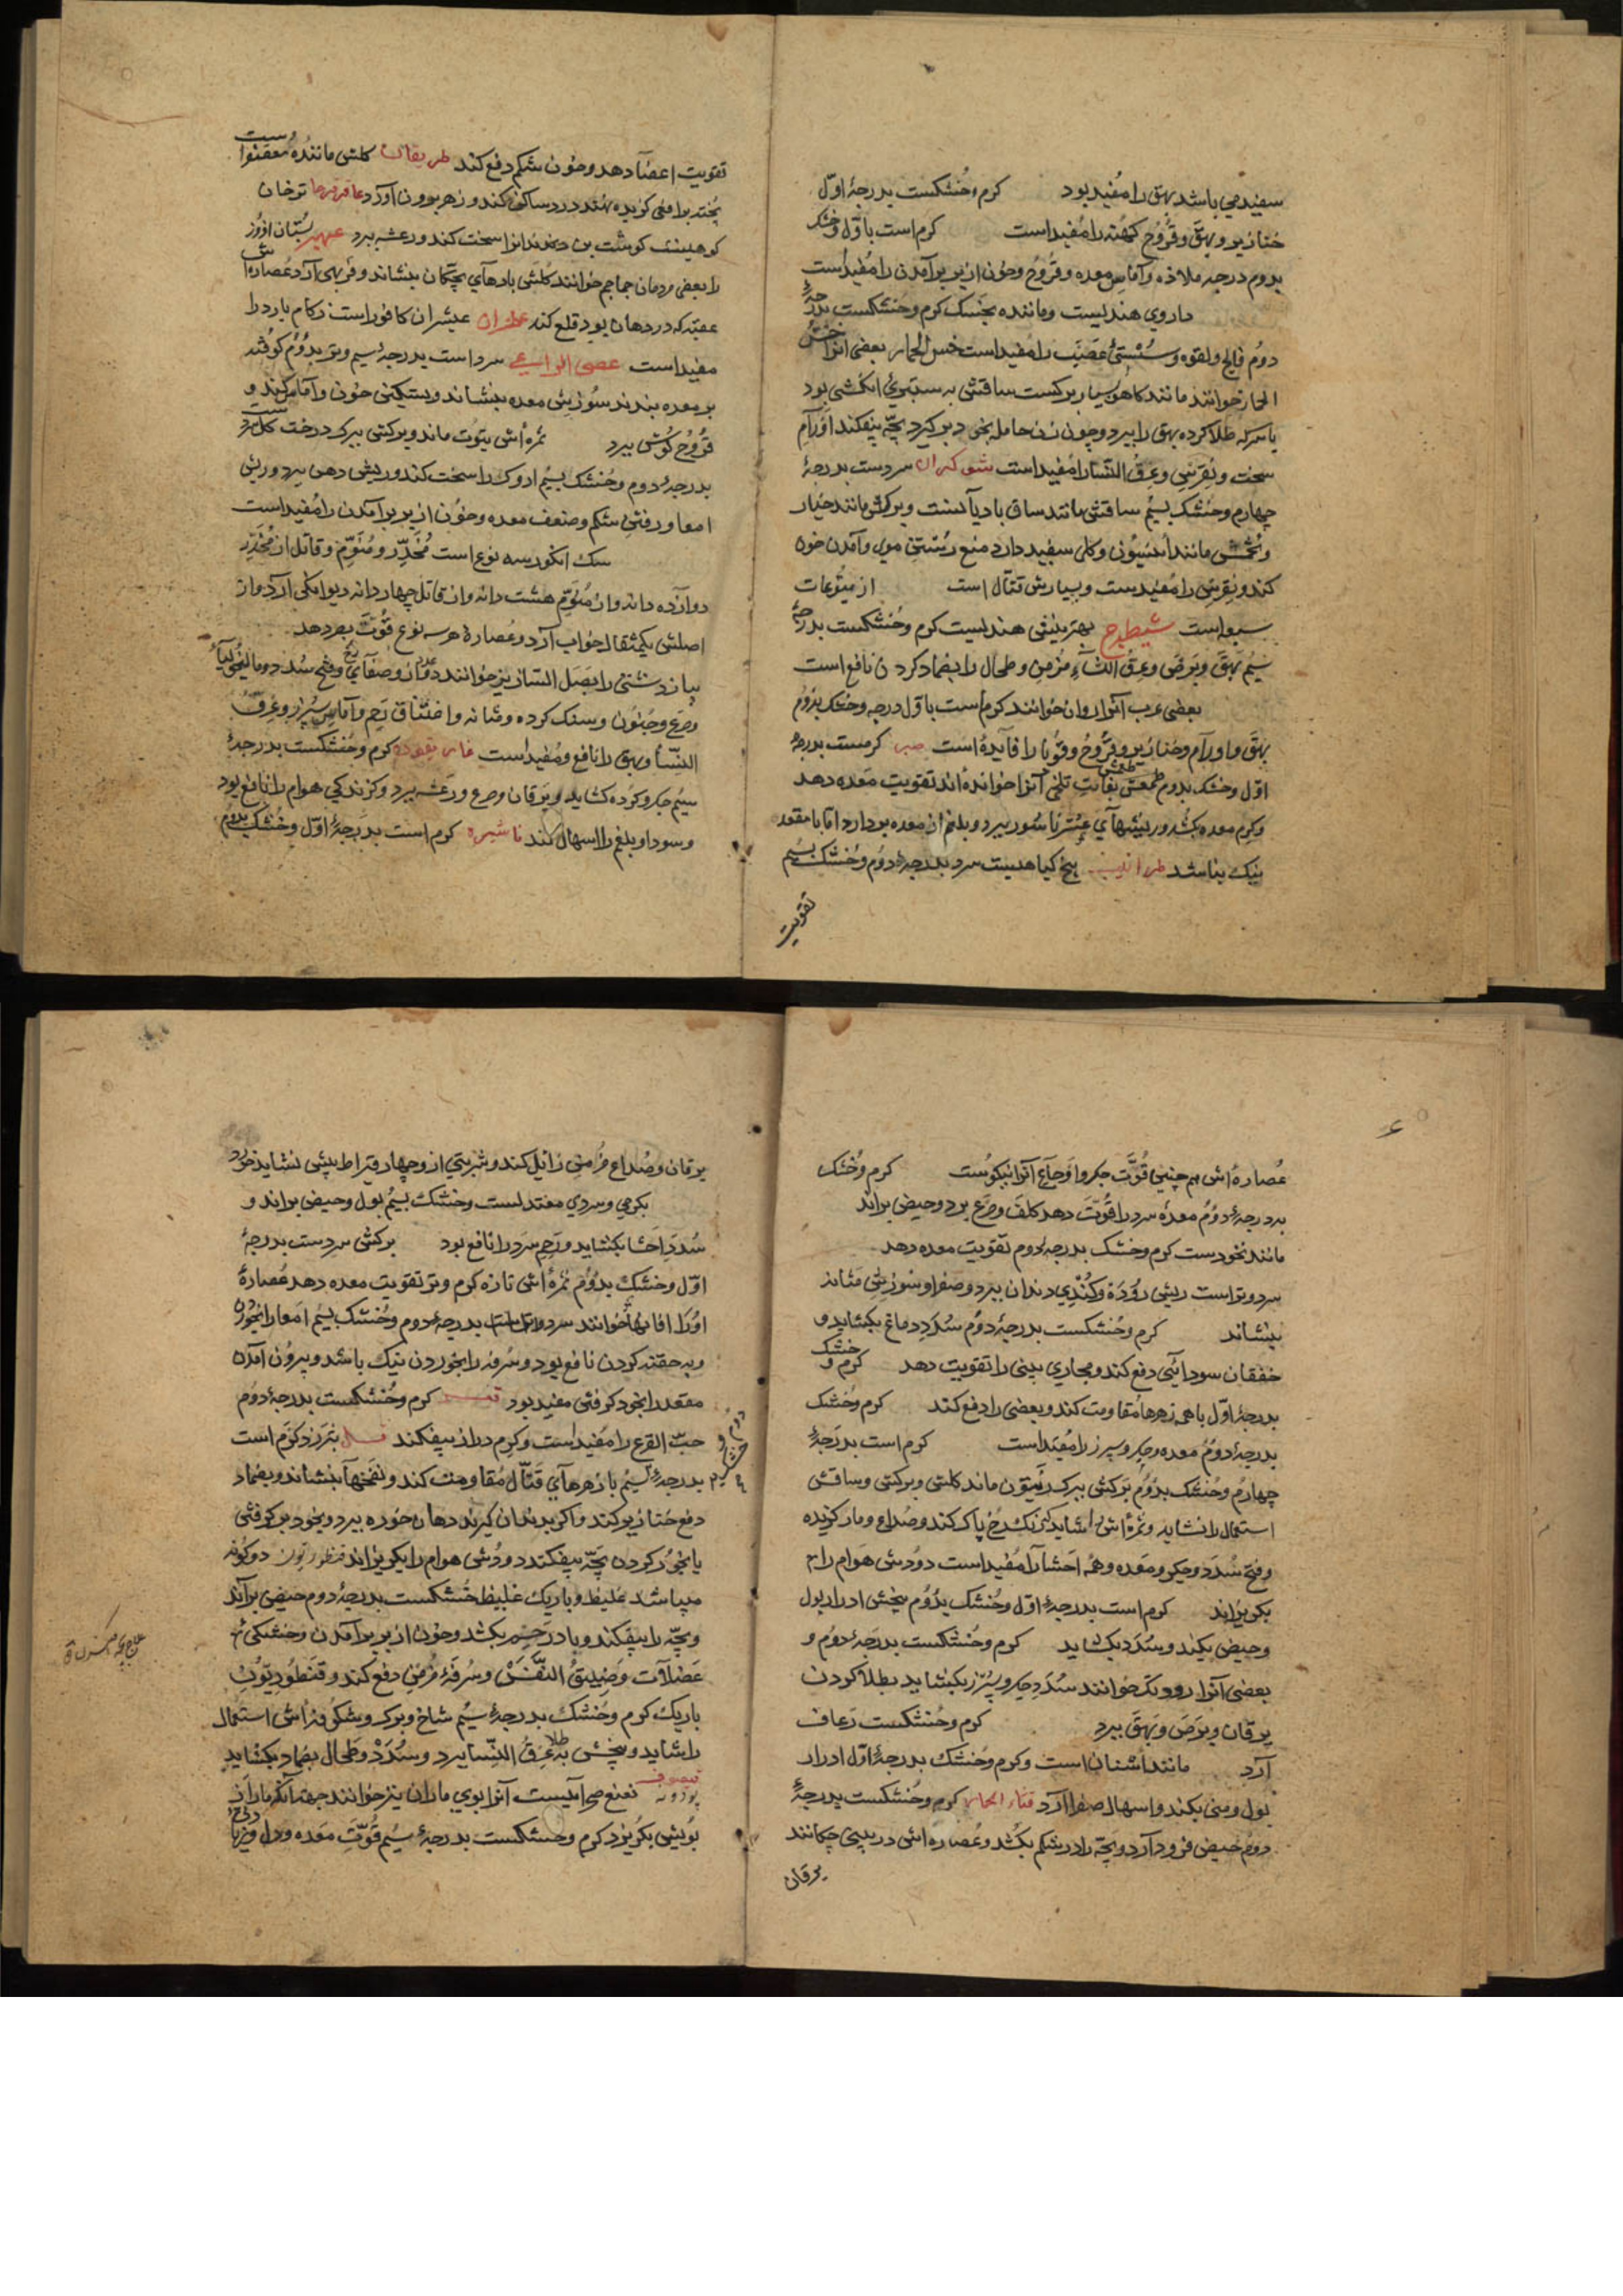 سفیدمی باشد بهق را مفید بود کرم و خشکست بدرجۀ اوّل
خنازیر و بهق و قروح کهنه را مفید است کرم است باوّل و خشک
بدوم درجه ملاذه و آماس معده و قروح و خون از بر برآمدن را مفید است
داروی هندیست و ماننده بجسک کرم و خشکست بدرجۀ
دوم فالج و لقوه و سستی عصب را مفید است خس الحمار بعضی انرا خس
الحمار خوانند مانند کاهو بسیار برکست ساقش به سبتری انکشی بود
با سرکه طلا کرده بهق را ببرد و چون زن حامله بخود برکیرد بچّه بیفکند اورام
سخت و نقرس و عرق النسا را مفید است شوکران سردست بدرجۀ
چهارم و خشک بسیم ساقش مانند ساق بادیانست و برکش مانند خیار
و تخمش مانند انیسون و کلی سفید دارد منع رستن موی و آمدن خون
کند و نقرس را مفیدست و بسیارش قتّال است از یتوعات
سبعه است شیطرج بهترینش هندیست کرم و خشکست بدرجۀ
سیم بهق و برص و عرق النساء مزمن و طحال را بضماد کردن نافع است
بعضی عرب آنرا روان خوانند کرم است باوّل درجه و خشک بدوم
بهق و اورام و خنازیر و قروح و قوبا را فایده است صبر کرمست بدرجۀ
اوّل و خشک بدوم طعمش بغایت تلخ آنرا خوانده اند تقویت معده دهد
و کرم معده بکشد و ریشهای عسر ناسور ببرد و بلغم از معده بردارد اما با مقعد
نیک نباشد طراثیث بیخ کیاهیست سرد بدرجۀ دوم و خشک بسیم
تقویت
تقویت اعضا دهد و خون شکم دفع کند طریفان کلش ماننده معقنواست
پخته بر افعی کزیده نهند درد ساکن کند و زهر بیرون آورد عاقرقرحا ترخان
کوهیست کوشت بن دندانرا سخت کند و رعشه ببرد عبهر بستان افروز
را بعضی مردمان جماجم خوانند کلش بادهای بچکان بنشاند و فربهی آرد عصاره اش
عفیّه که در دهان بود قلع کند عبیثران کافور است زکام بارد را
مفید است عصی الراعی سرد است بدرجۀ سیم و تر بدوم کوفته
بر معده بندند سوزش معده بنشاند و بستکی خون و آماس کند و
قروح کوش ببرد ثمره اش بتوت ماند و برکش ببرک درخت کل سرد
بدرجۀ دوم و خشک بسیم را سخت کند و ریش دهن ببرد و ریش
امعا و رفتن شکم و ضعف معده و خون از بر برآمدن را مفید است
سک انکور سه نوع است مخدّر و منوّم و قاتل از مخدّر
دوازده دانه و از منوّم هشت دانه و از قاتل چهار دانه دیوانکی آرد و از
اصلش یکمثقال خواب آرد و عصارۀ هر سه نوع قوّت بصر دهد
پیاز دشتی را بصل النسا نیز خوانند و فتح سدد و مالیخولیا
و صرع و جنون و سنک کرده و مثانه و اختناق رحم و آماس سپرز و عرق
النسا و بهق را نافع و مفید است کرم و خشکست بدرجۀ
سیم جکر و کرده کشاید و یرقان و صرع و رعشه ببرد و کزندکی هوام را نافع بود
و سودا و بلغم را اسهال کند فاشیرا کرم است بدرجۀ اوّل و خشک بدوم
عصاره اش هم چنین قوّت جکر و اوجاع آنرا نیکوست کرم و خشک
بدرجۀ دوم معدۀ سرد را قوّت دهد کلف و صرع برد و حیض براند
مانند نخودست کرم و خشک بدرجۀ دوم تقویت معده دهد
سرد و تر است ریش روده و کندی دندان ببرد و صفرا و سوزش مثانه
بنشاند کرم و خشکست بدرجۀ دوم سدد دماغ بکشاید و
خفقان سودایی دفع کند و مجاری بینی را تقویت دهد کرم و خشک
بدرجۀ اوّل با همه زهرها مقاومت کند و بعضی را دفع کند کرم و خشک
بدرجۀ دوم معده و جکر و سپرز را مفید است کرم است بدرجۀ
چهارم و خشک بدوم برکش ببرک زیتون ماند کلش و برکش و ساقش
استعمال را نشاید و ثمره اش را شاید رنک رخ پاک کند و صداع و مار کزیده
و فتح سدد و جکر و معده و همه احشا را مفید است دودش هوام را
بکریزاند کرم است بدرجۀ اوّل و خشک بدوم بیخش ادرار بول
و حیض بکند و سدد بکشاید کرم و خشکست بدرجۀ دوم و
بعضی آنرا روونک خوانند سدد جکر و سپرز بکشاید بطلا کردن
یرقان و برص و بهق ببرد کرم و خشکست رعاف
آرد مانند اشنان است و کرم و خشک بدرجۀ اوّل ادرار
بول و منی بکند و اسهال صفرا آرد قثاء الحمار کرم و خشکست بدرجۀ
دوم حیض فرود آرد و بچّه را در شکم بکشد و عصاره اش در بینی چکانند
یرقان
یرقان و صداع مزمن زایل کند و شربتی از و چهار قیراط بیش نشاید خورد
بکرمی و سردی معتدلست و خشک بسیم بول و حیض براند و
سدد احشا بکشاید و رحم سرد را نافع بود برکش سردست بدرجۀ
اوّل و خشک بدوم ثمره اش تازه کرم و تر تقویت معده دهد عصارۀ
اورا اقاقیا خوانند سرد است بدرجۀ دوم و خشک بسیم امعا را بخوردن
و به حقنه کردن نافع بود و سرفه را بخوردن نیک باشد و بیرون آمدن
مقعد را بخود کرفتن مفید بود کرم و خشکست بدرجۀ دوم
حبّ القرع را مفید است و کرم دراز بیفکند کرم است
بدرجۀ سیم با زهرهای قتّال مقاومت کند و نفخها بنشاند و بضماد
دفع خنازیر کند و اکر بدندان کیرند دهان خوره ببرد و بخود برکرفتن
یا بخور کردن بچّه بیفکند دودش هوام را بکریزاند قنطوریون دو کونه
میباشد غلیظ و باریک غلیظ خشکست بدرجۀ دوم حیض براند
و بچّه را بیفکند و باد رحم بکشد و خون از بر برآمدن و خستکی
عضلات و ضیق النفس و سرفۀ مزمن دفع کند و قنطوریون
باریک کرم و خشک بدرجۀ سیم شاخ و برک و شکوفه اش استعمال
را شاید و بیخش نه بطلا عرق النسا ببرد و سدد و طحال بضماد بکشاید
پودونه نعنع صحراییست آنرا بوی ماران نیز خوانند جهة آنکه ماران از
بویش بکریزد کرم و خشکست بدرجۀ سیم قوّت معده و دل